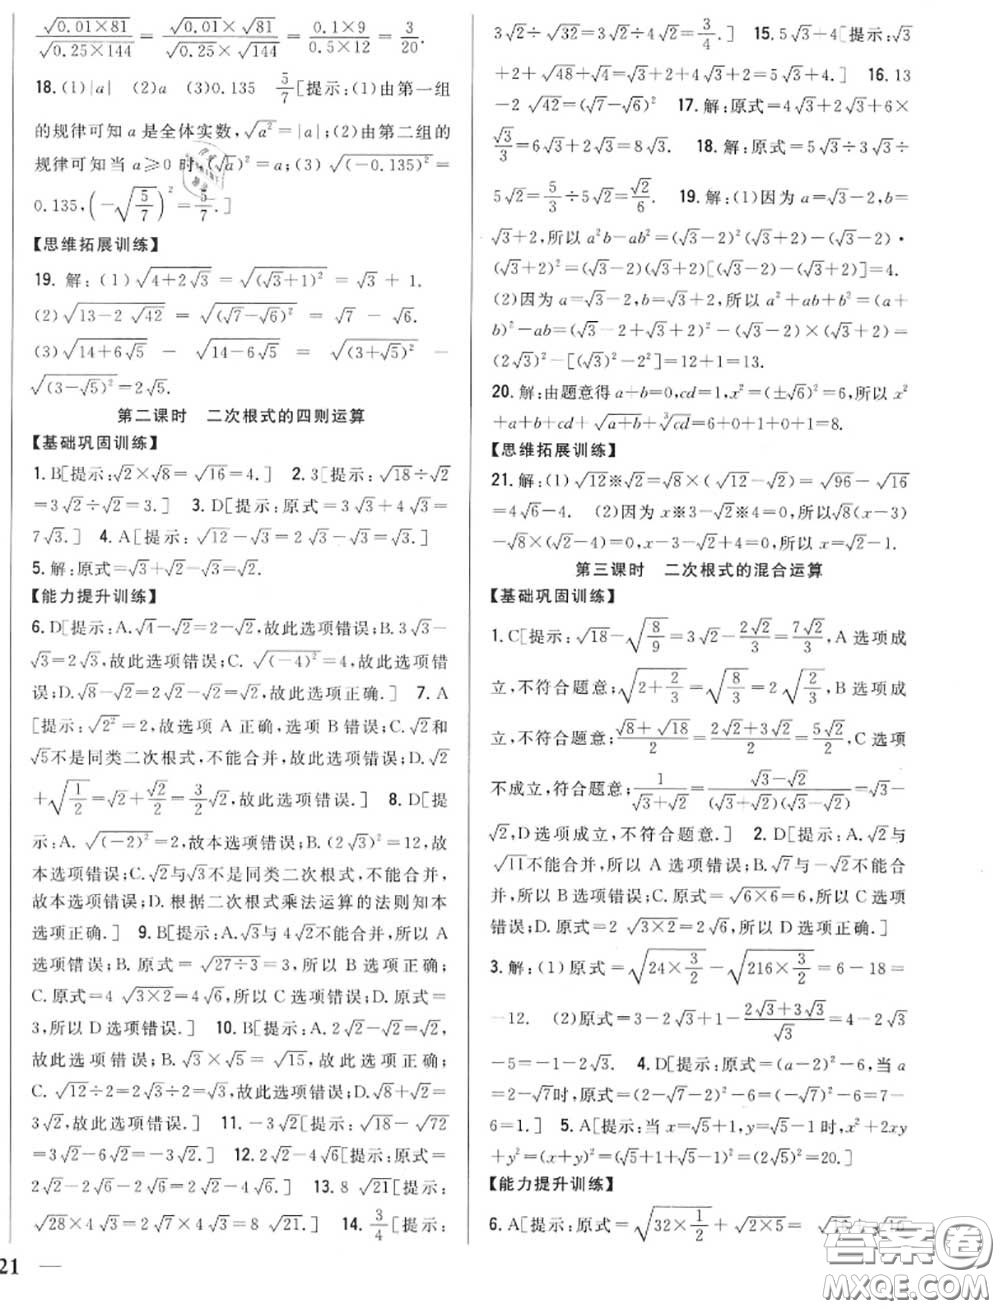 √(0.01×81)/√(0.25×144)=(√0.01×√81)/(√0.25×√144)=(0.1×9)/(0.5×12)=3/20.
18.(1)|a| (2)a (3)0.135 5/7[提示:(1)由第一组
的规律可知a是全体实数,√(a²)=|a|;(2)由第二组的
规律可知当a≥0时,(√a)²=a;(3)√((-0.135)²)=
0.135,(-√(5/7))²=5/7.]
【思维拓展训练】
19.解:(1)√(4+2√3)=√((√3+1)²)=√3+1.
(2)√(13-2√42)=√((√7-√6)²)=√7-√6.
(3)√(14+6√5)-√(14-6√5)=√((3+√5)²)-
√((3-√5)²)=2√5.
第二课时 二次根式的四则运算
【基础巩固训练】
1.B[提示:√2×√8=√16=4.] 2.3[提示:√18÷√2
=3√2÷√2=3.] 3.D[提示:原式=3√3+4√3=
7√3.] 4.A[提示:√12-√3=2√3-√3=√3.]
5.解:原式=√3+√2-√3=√2.
【能力提升训练】
6.D[提示:A.√4-√2=2-√2,故此选项错误;B.3√3-
√3=2√3,故此选项错误;C.√((-4)²)=4,故此选项错
误;D.√8-√2=2√2-√2=√2,故此选项正确.] 7.A
[提示:√(2²)=2,故选项A正确,选项B错误;C.√2和
√5不是同类二次根式,不能合并,故此选项错误;D.√2
+√(1/2)=√2+√2/2=3/2√2,故此选项错误.] 8.D[提
示:A.√((-2)²)=2,故本选项错误;B.(2√3)²=12,故
本选项错误;C.√2与√3不是同类二次根式,不能合并,
故本选项错误;D.根据二次根式乘法运算的法则知本
选项正确.] 9.B[提示:A.√3与4√2不能合并,所以A
选项错误;B.原式=√(27÷3)=3,所以B选项正确;
C.原式=4√(3×2)=4√6,所以C选项错误;D.原式=
3,所以D选项错误.] 10.B[提示:A.2√2-√2=√2,
故此选项错误;B.√3×√5=√15,故此选项正确;
C.√12÷2=2√3÷2=√3,故此选项错误;D.√8+√2=
3√2,故此选项错误.] 11.-3√2[提示:√18-√72
=3√2-6√2=-3√2.] 12.2√2-4√6[提示:原式=
2√2-2√6-2√6=2√2-4√6.] 13.8√21[提示:
√28×4√3=2√7×4√3=8√21.] 14.3/4[提示:
3√2÷√32=3√2÷4√2=3/4.] 15.5√3+4[提示:√3
+2+√48+√4=√3+2+4√3+2=5√3+4.] 16.13
-2√42=(√7-√6)² 17.解:原式=4√3+2√3+6×
√3/3=6√3+2√3=8√3. 18.解:原式=5√3÷3√3÷
5√2=5/3÷5√2=√2/6. 19.解:(1)因为a=√3-2,b=
√3+2,所以a²b-ab²=(√3-2)²(√3+2)-(√3-2)·
(√3+2)²=(√3-2)(√3+2)[(√3-2)-(√3+2)]=4.
(2)因为a=√3-2,b=√3+2,所以a²+ab+b²=(a+
b)²-ab=(√3-2+√3+2)²-(√3-2)×(√3+2)=
(2√3)²-[(√3)²-2²]=12+1=13.
20.解:由题意得a+b=0,cd=1,x²=(±√6)²=6,所以x²
+a+b+cd+√(a+b)+∛(cd)=6+0+1+0+1=8.
【思维拓展训练】
21.解:(1)√12※√2=√8×(√12-√2)=√96-√16
=4√6-4. (2)因为x※3-√2※4=0,所以√8(x-3)
-√8×(√2-4)=0,所以x=√2-1.
第三课时 二次根式的混合运算
【基础巩固训练】
1.C[提示:√18-√(8/9)=3√2-2√2/3=7√2/3,A选项成
立,不符合题意;√(2+2/3)=√(8/3)=2√(2/3),B选项成
立,不符合题意;(√8+√18)/2=(2√2+3√2)/2=5√2/2,C选项
不成立,符合题意;1/(√3+√2)=(√3-√2)/((√3+√2)(√3-√2))=√3-
√2,D选项成立,不符合题意.] 2.D[提示:A.√2与
√11不能合并,所以A选项错误;B.√7与-√2不能合
并,所以B选项错误;C.原式=√(6×6)=6,所以C选项
错误;D.原式=2√(3×2)=2√6,所以D选项正确.]
3.解:(1)原式=√(24×3/2)-√(216×3/2)=6-18=
-12. (2)原式=4-2√3+1-(2√3+3√3)/√3=4-2√3
-5=-1-2√3. 4.D[提示:原式=(a-2)²-6,当a
=2-√7时,原式=(2-√7-2)²-6=(-√7)²-6=7-
6=1.] 5.A[提示:当x=√5+1,y=√5-1时,x²+2xy
+y²=(x+y)²=(√5+1+√5-1)²=(2√5)²=20.]
【能力提升训练】
6.A[提示:原式=√(32×1/2)+√(2×5)=
21
答案圈
MXQE.COM